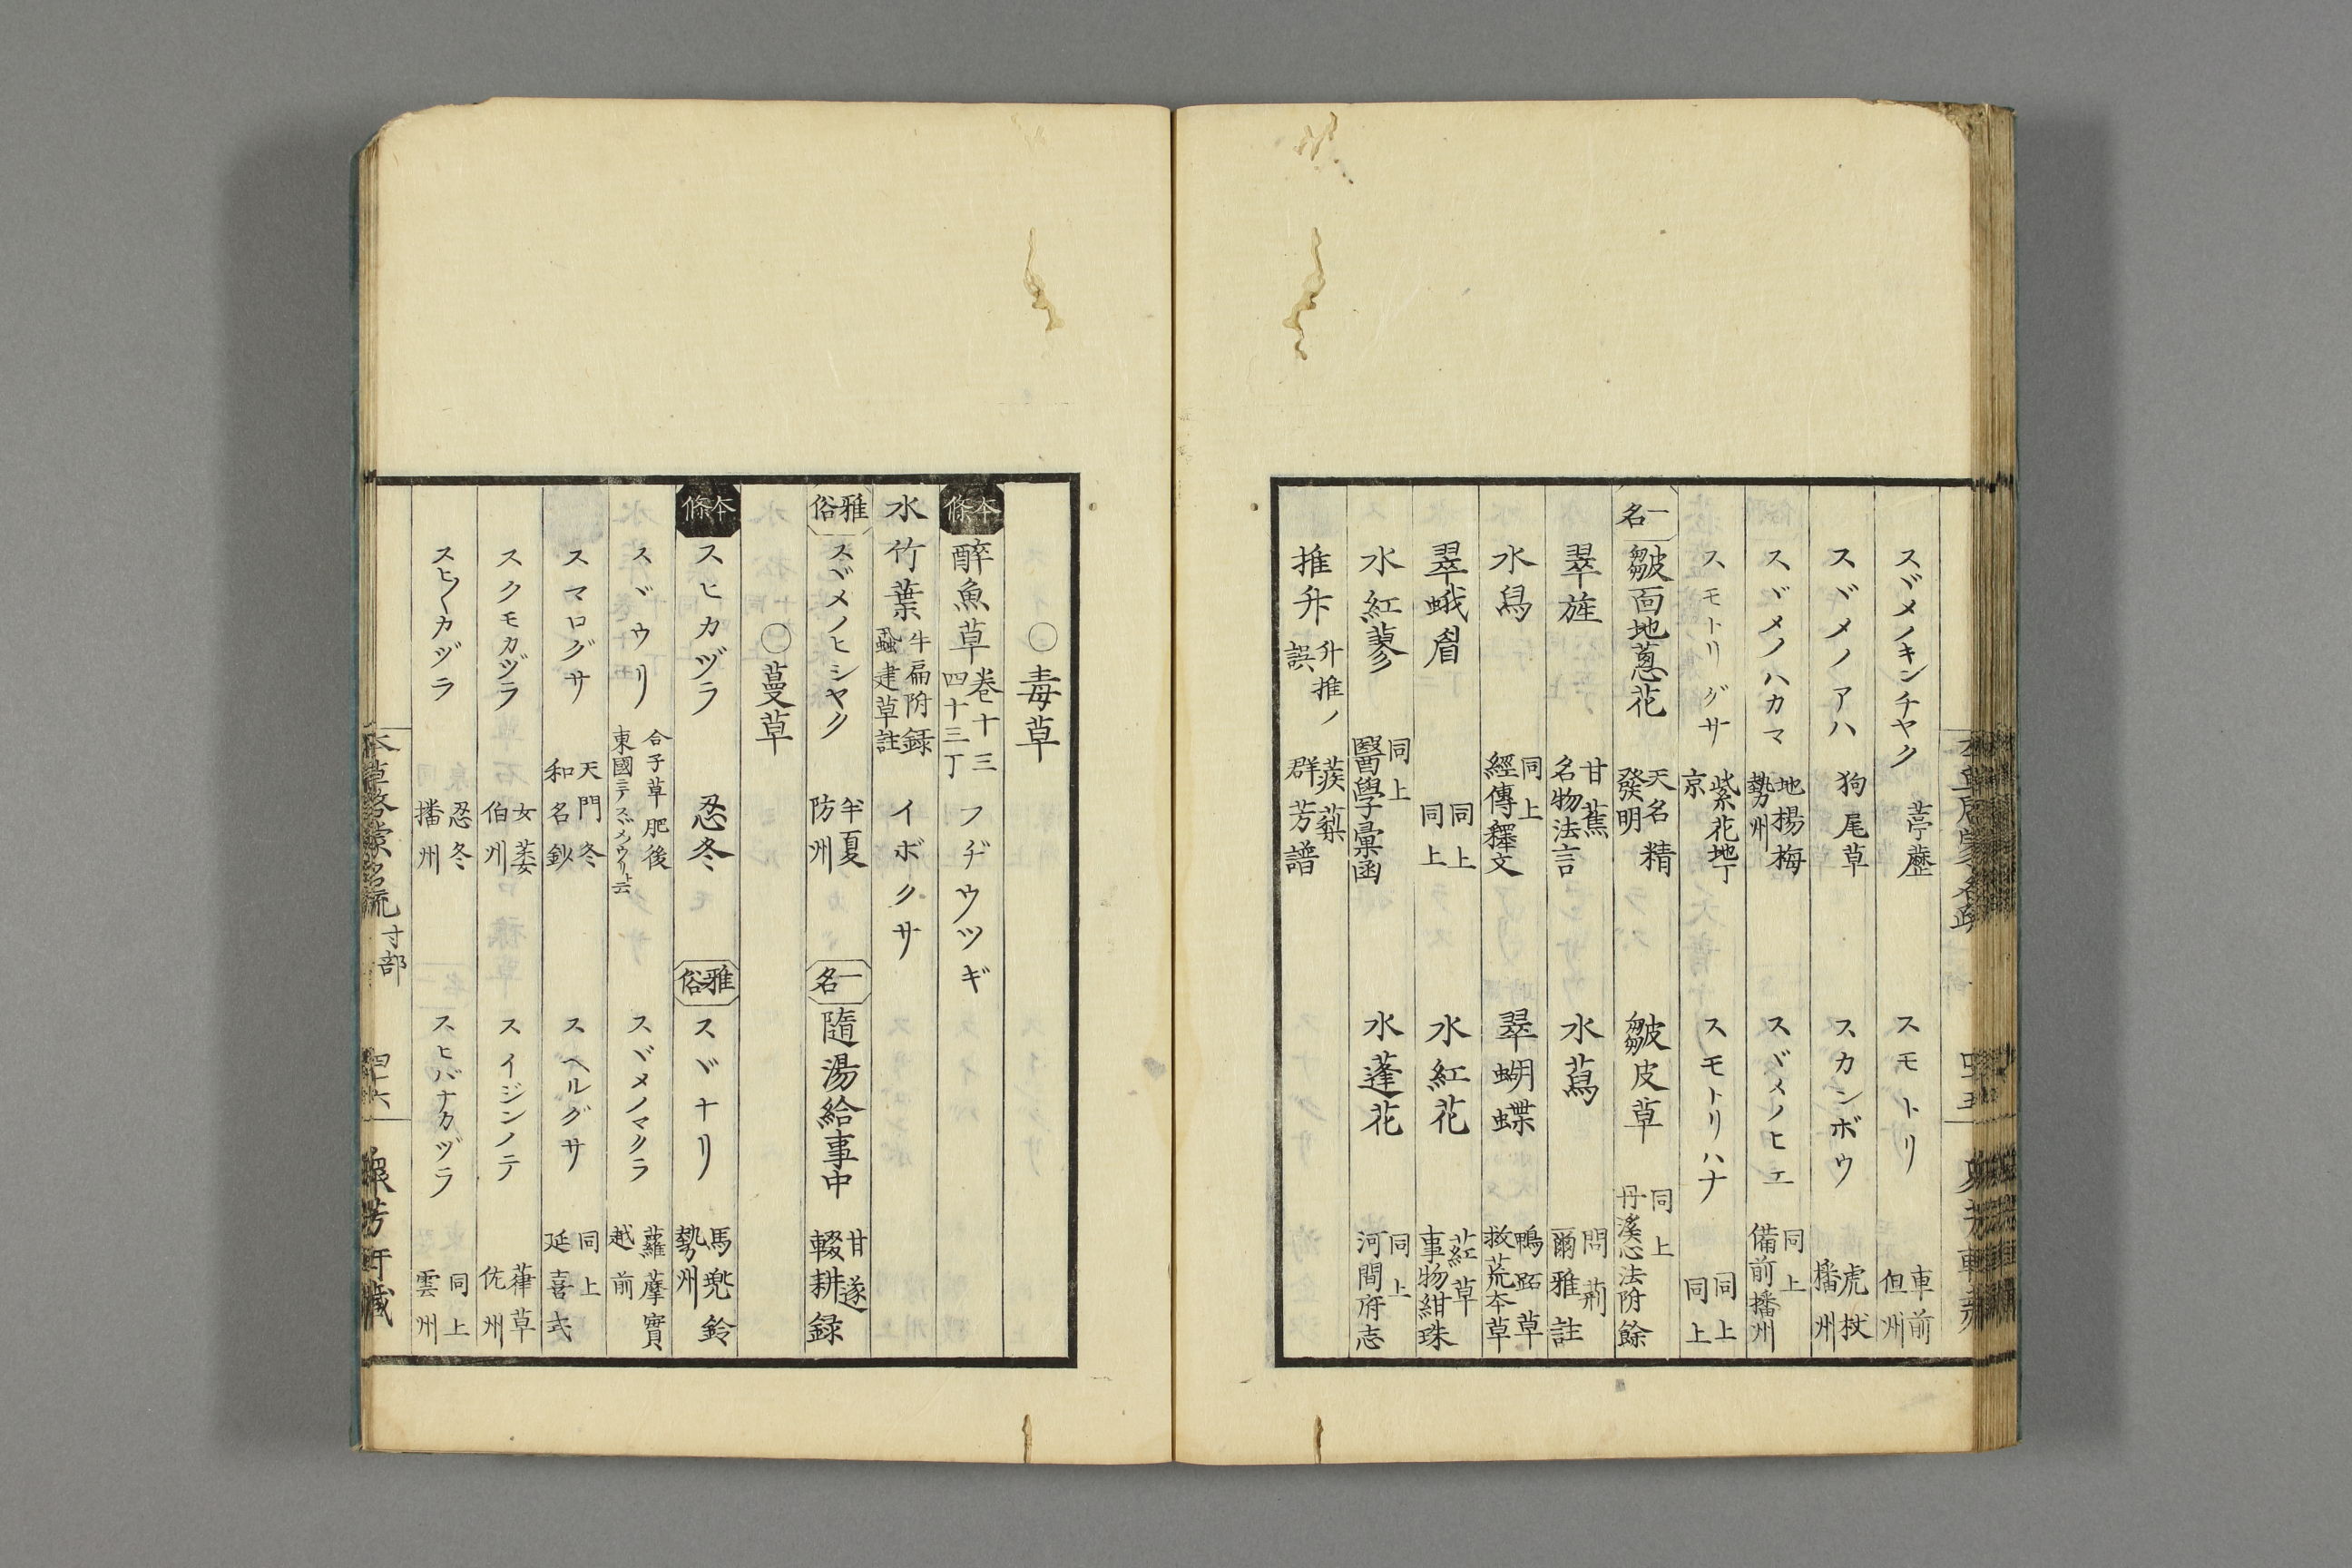 スヾメノキンチヤク 葶藶 スモトリ 車前 但州
スヾメノアハ 狗尾草 スカンボウ 虎杖 播州
スヾメノハカマ 地楊梅 勢州 スヾメノヒエ 同上 備前播州
スモトリグサ 紫花地丁 京 スモトリハナ 同上 同上
一名 皺面地葱花 天名精 發明 皺皮草 同上 丹溪心法附餘
翠旌 甘蕉 名物法言 水蔿 問荊 爾雅註
水舄 同上 經傳釋文 翠蝴蝶 鴨跖草 救荒本草
翠蛾眉 同上 同上 水紅花 葒草 事物紺珠
水紅蓼 同上 醫學彙函 水蓬花 同上 河間府志
推升 升推ノ誤 蒺蔾 群芳譜
〇毒草
本條 醉魚草 卷十三 四十三丁 フヂウツギ
水竹葉 牛扁附録 蝨建草註 イボクサ
雅俗 スヾメノヒシヤク 半夏 防州 一名 隨湯給事中 甘遂 輟耕録
〇蔓草
本條 スヒカヅラ 忍冬 雅俗 スヾナリ 馬兜鈴 勢州
スヾウリ 合子草肥後 東國ニテスズメウリト云 スヾメノマクラ 蘿藦實 越前
スマログサ 天門冬 和名鈔 スヘルグサ 同上 延喜式
スクモカヅラ 女萎 伯州 スイジンノテ 葎草 佐州
スヒ〱カヅラ 忍冬 播州 スヒバナカヅラ 同上 雲州
本草啓蒙名疏 寸部 四十六 衆芳軒藏